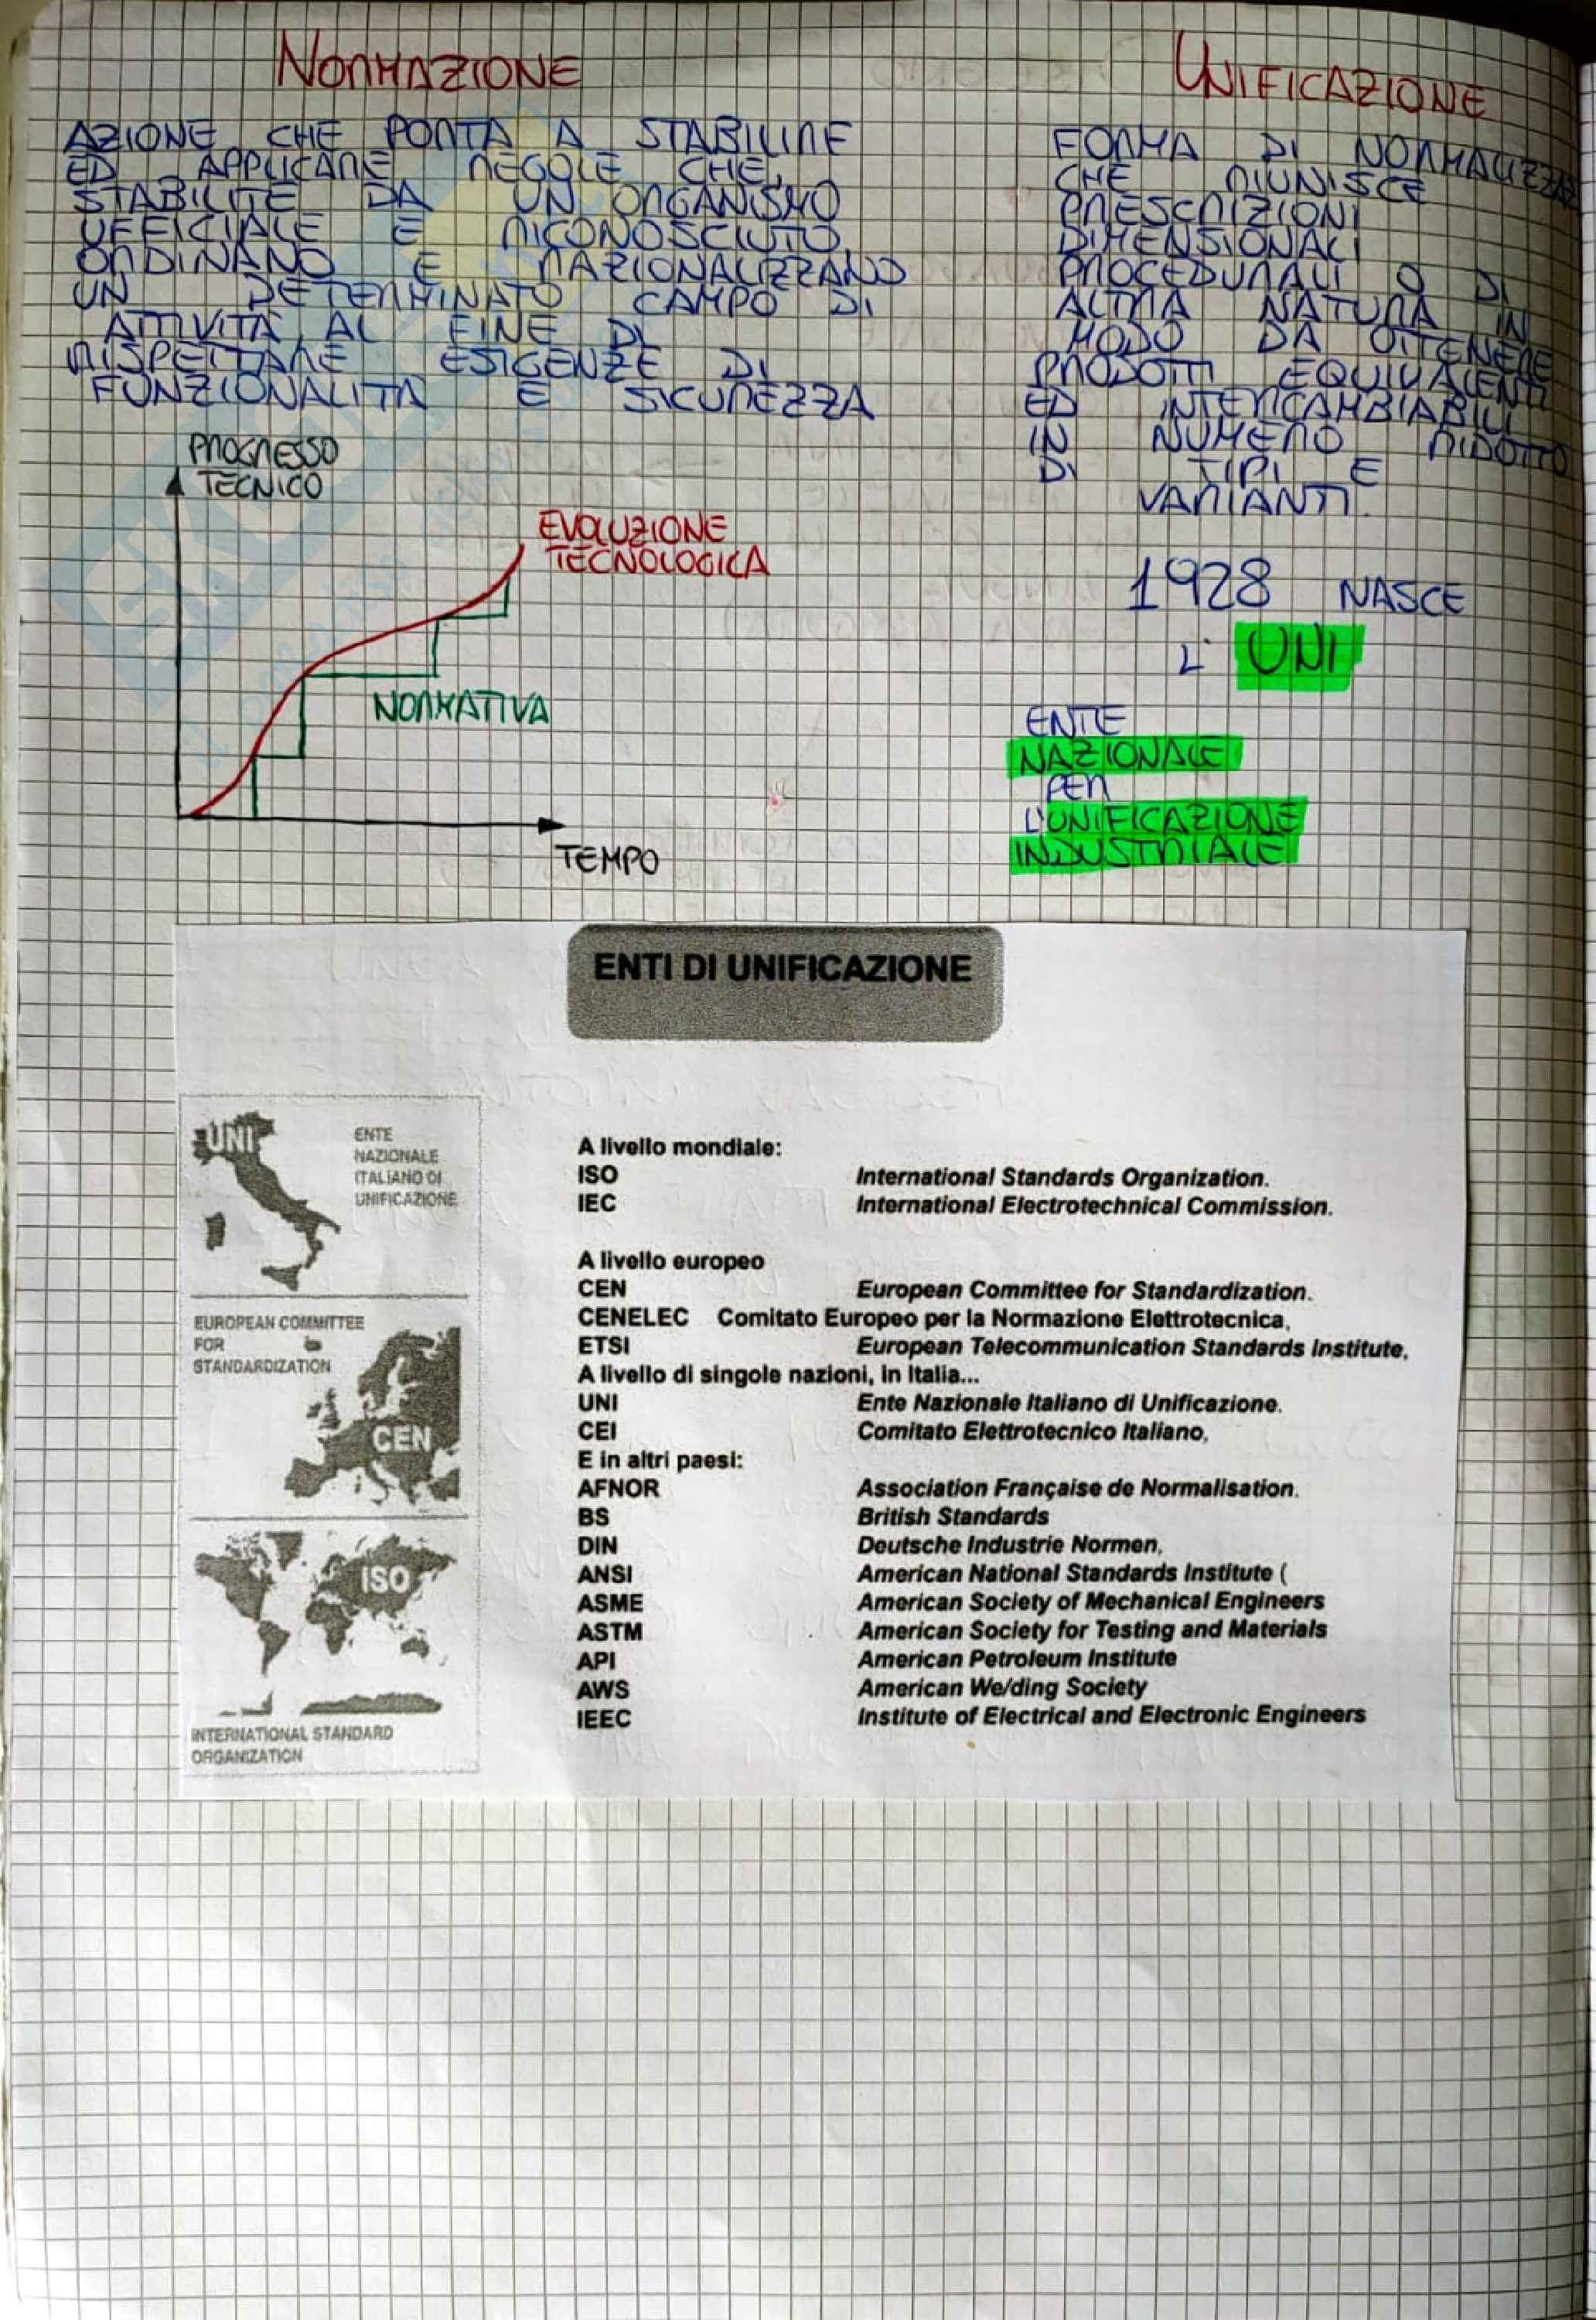 NORMAZIONE
AZIONE CHE PORTA A STABILIRE
ED APPLICARE REGOLE CHE,
STABILITE DA UN ORGANISMO
UFFICIALE E RICONOSCIUTO,
ORDINANO E RAZIONALIZZANO
UN DETERMINATO CAMPO DI
ATTIVITÀ, AL FINE DI
RISPETTARE ESIGENZE DI
FUNZIONALITÀ E SICUREZZA
PROGRESSO
TECNICO
EVOLUZIONE
TECNOLOGICA
NORMATIVA
TEMPO
UNIFICAZIONE
FORMA DI NORMALIZZAZ
CHE RIUNISCE
PRESCRIZIONI
DIMENSIONALI
PROCEDURALI O DI
ALTRA NATURA IN
MODO DA OTTENERE
PRODOTTI EQUIVALENTI
ED INTERCAMBIABILI
IN NUMERO RIDOTTO
DI TIPI E
VARIANTI.
1928 NASCE
L' UNI
ENTE
NAZIONALE
PER
L'UNIFICAZIONE
INDUSTRIALE
ENTI DI UNIFICAZIONE
UNI
ENTE
NAZIONALE
ITALIANO DI
UNIFICAZIONE
EUROPEAN COMMITTEE
FOR
STANDARDIZATION
CEN
ISO
INTERNATIONAL STANDARD
ORGANIZATION
A livello mondiale:
ISO International Standards Organization.
IEC International Electrotechnical Commission.
A livello europeo
CEN European Committee for Standardization.
CENELEC Comitato Europeo per la Normazione Elettrotecnica,
ETSI European Telecommunication Standards Institute,
A livello di singole nazioni, in Italia...
UNI Ente Nazionale Italiano di Unificazione.
CEI Comitato Elettrotecnico Italiano,
E in altri paesi:
AFNOR Association Française de Normalisation.
BS British Standards
DIN Deutsche Industrie Normen,
ANSI American National Standards Institute (
ASME American Society of Mechanical Engineers
ASTM American Society for Testing and Materials
API American Petroleum Institute
AWS American We/ding Society
IEEC Institute of Electrical and Electronic Engineers